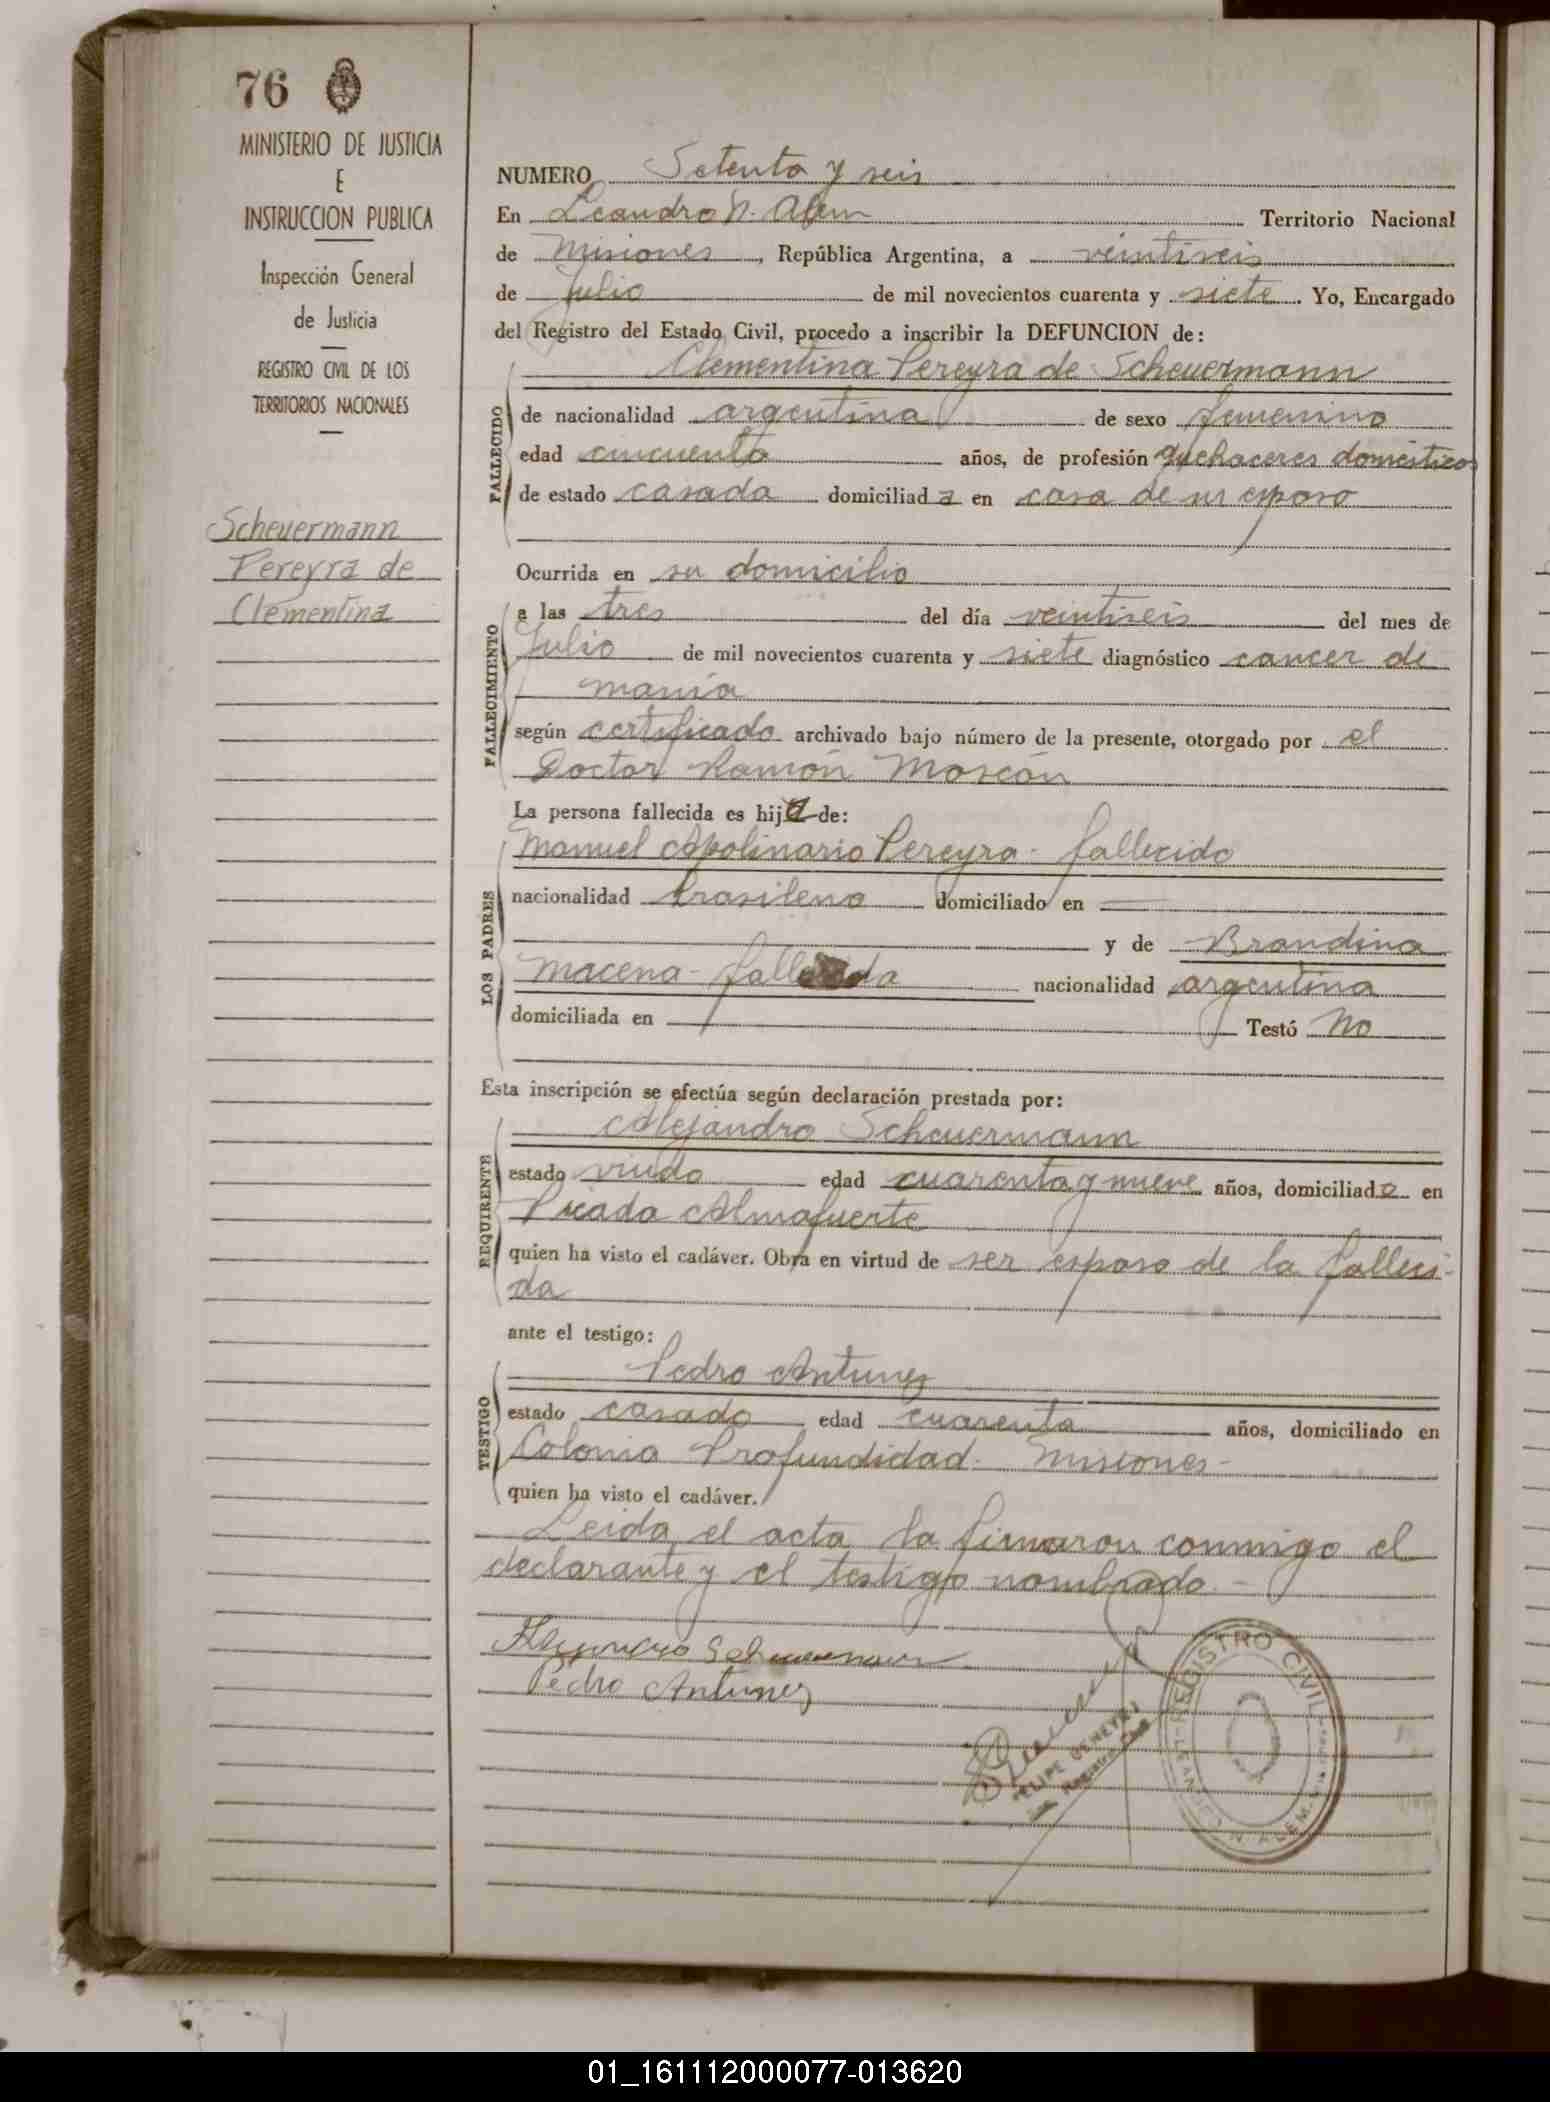 76
MINISTERIO DE JUSTICIA
E
INSTRUCCION PUBLICA
Inspección General
de Justicia
REGISTRO CIVIL DE LOS
TERRITORIOS NACIONALES
Scheuermann
Pereyra de
Clementina
NUMERO Setenta y seis
En Leandro N. Alem Territorio Nacional
de Misiones, República Argentina, a veintiseis
de Julio de mil novecientos cuarenta y siete. Yo, Encargado
del Registro del Estado Civil, procedo a inscribir la DEFUNCION de:
Clementina Pereyra de Scheuermann
FALLECIDO
de nacionalidad argentina de sexo femenino
edad cincuenta años, de profesión quehaceres domésticos
de estado casada domiciliada en casa de su esposo
Ocurrida en su domicilio
FALLECIMIENTO
a las tres del día veintiseis del mes de
Julio de mil novecientos cuarenta y siete diagnóstico cancer de
según certificado archivado bajo número de la presente, otorgado por el
Doctor Ramón
La persona fallecida es hija de:
LOS PADRES
Manuel Apolinario Pereyra - fallecido
nacionalidad brasileno domiciliado en
y de Brandina
Macena - fallecida nacionalidad argentina
domiciliada en Testó No
Esta inscripción se efectúa según declaración prestada por:
REQUIRENTE
Alejandro Scheuermann
estado viudo edad cuarenta y nueve años, domiciliado en
Picada Almafuerte
quien ha visto el cadáver. Obra en virtud de ser esposo de la falleci-
da
ante el testigo:
TESTIGO
Pedro Antunez
estado casado edad cuarenta años, domiciliado en
Colonia Profundidad - Misiones -
quien ha visto el cadáver.
Leida el acta la firmaron conmigo el
declarante y el testigo nombrado -
Pedro Antunez
FELIPE
Registro Civil
REGISTRO CIVIL
LEANDRO N. ALEM
01_161112000077-013620